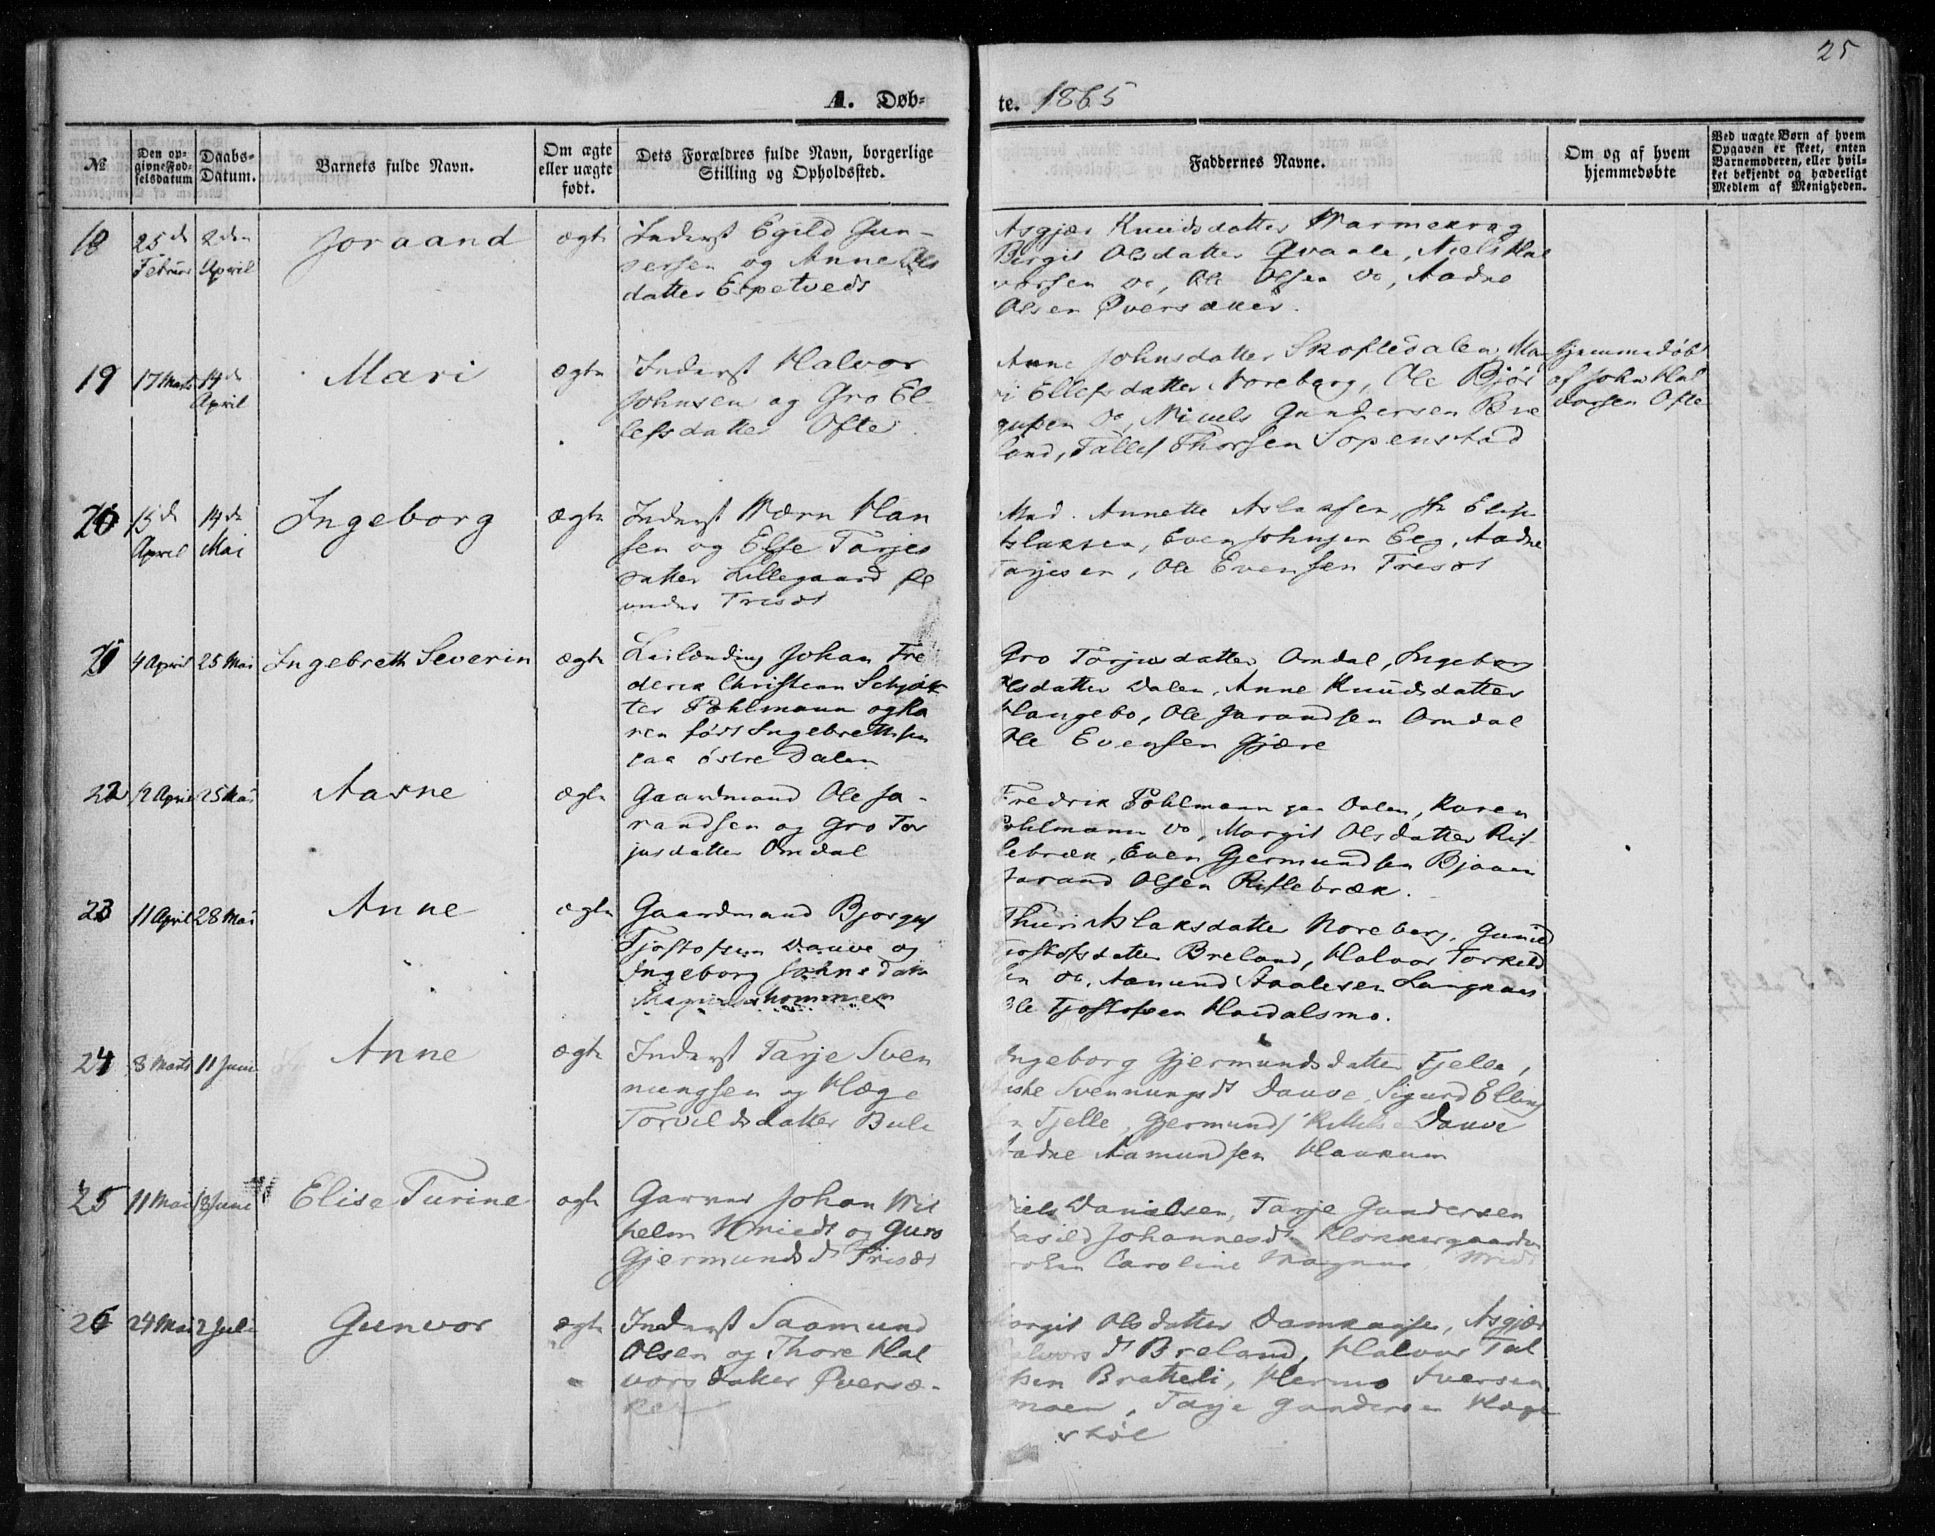 25
A. Døb-
te. 1865
№
Den op-
givne Fød-
selsdatum
Daabs-
Datum.
Barnets fulde Navn.
Om ægte
eller uægte
født.
Dets Forældres fulde Navn, borgerlige
Stilling og Opholdssted.
Faddernes Navne.
Om og af hvem
hjemmedøbte
Ved uægte Børn af hvem
Opgaven er skeet, enten
Barnemoderen, eller hvil-
ket bekjendt og hæderligt
Medlem af Menigheden.
18
25 de
Februar
2 den
April
Joraand
ægte
Inderst Egild Gun-
dersen og Anne Ols
datter Espetveds
Asgjær Knudsdatter Warmekrag
Birgit Olsdatter Qvaale, Niels Hal
vorsen do, Ole Olsen do, Aadne
Olsen Øversaker.
19
17 Marts
14 de
April
Mari
ægte
Inderst Halvor
Johnsen og Gro El-
lefsdatter Ofte
Anne Johnsdatter Skoftedalen, Ma
ri Ellefsdatter Noreberg, Ole Bjør
gufsen do, Niuels Gundersen Bre
land, Tallef Thorsen Sopenstad
Hjemmedøbt
af John Hal
vorsen Ofte
20
15 de
April
14 de
Mai
Ingeborg
ægte
Inderst Værn Han
sen og Else Tarjes
datter Lillegaard pl
under Trisæt
Mad. Annette Aslaksen, Fr Elise
Aslaksen, Even Johnsen Eeg, Aadne
Tarjesen, Ole Evensen Trisæt
21
4 April
25 Mai
Ingebreth Severin
ægte
Leilænding Johan Fre
derik Christian Schjøt
ter Pøhlmann og Ka
ren født Ingebrethsen
paa østre Dalen
Gro Torjusdatter Omdal, Ingeborg
Olsdatter Dalen, Anne Knudsdatter
Haugebo, Ole Jorandsen Omdal
Ole Evensen Gjære
22
12 April
25 Mai
Aasne
ægte
Gaardmand Ole Jo-
randsen og Gro Tor
jusdatter Omdal
Fredrik Pøhlmann paa Dalen, Karen
Pøhlmann do, Margit Olsdatter Rif-
lebræk, Even Gjermundsen Bjaaen
Jorand Olsen Riflebræk.
23
11 April
28 Mai
Anne
ægte
Gaardmand Bjorguf
Tjostofsen Dauve og
Ingeborg Johnsdatt
hommen
Thuri Aslaksdatter Noreberg, Gunild
Tjostofsdatter Breland, Halvor Torkild
sen do, Aamund Staalesen Langkaas
Ole Tjostofsen Haidalsmo.
24
8 Marts
11 Juni
Anne
ægte
Inderst Tarje Sven
nungsen og Hæge
Torvildsdatter Buli
Ingeborg Gjermundsdatter Fjelle,
Aaste Svennungsdt Dauve, Sigurd Elling
sen Fjelle, Gjermund Kittilse Dauve
Aadne Aamundsen Haukum
25
11 Mai
18 Juni
Elise Turine
ægte
Garver Johan Wil
helm Wriedt og Guro
Gjermundsdt Trisæt
Niels Danielsen, Tarje Gundersen
Aasild Johannesdt Klokkergaarden
Caroline Magnus Wriedt
26
24 Mai
2 Juli
Gunvor
ægte
Inderst Saamund
Olsen og Thore Hal
vorsdatter Øversæ-
ker
Margit Olsdatter Damkaase, Asgjær
Halvorsdt Breland, Halvor Tal
lefsen Bratteli, Hermo Iversen
moen, Tarje Gundersen Hage
støl